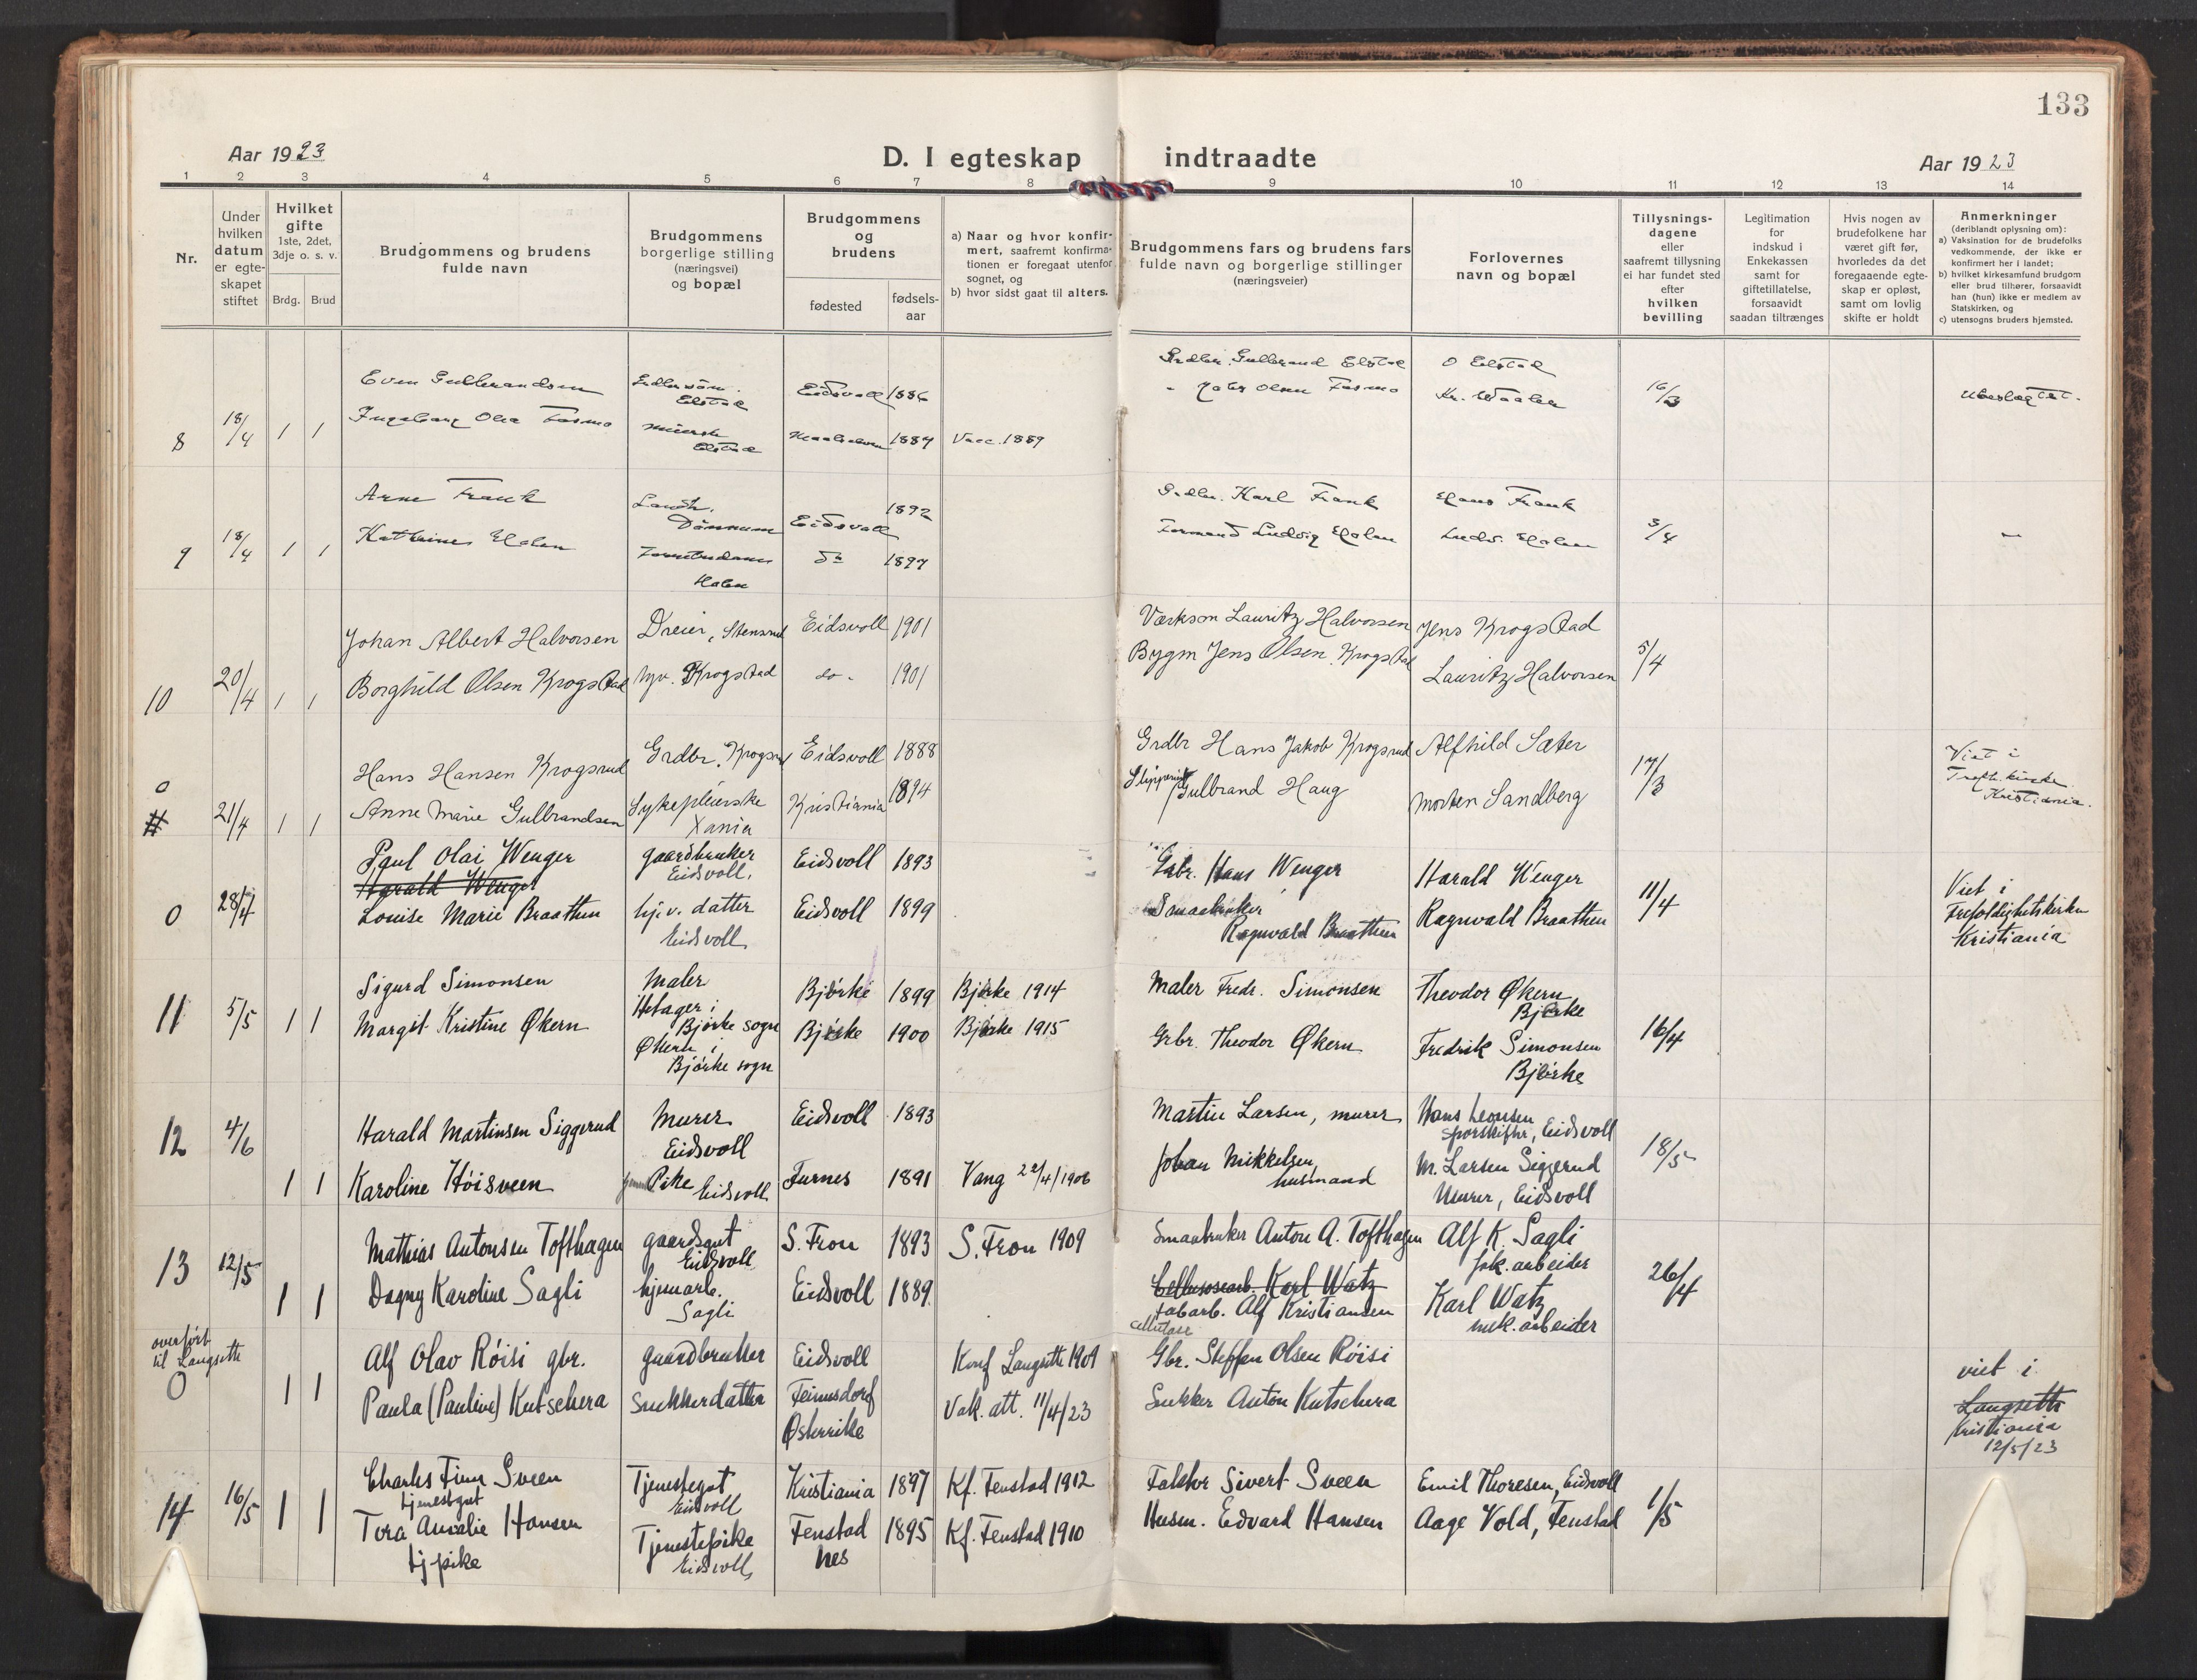 133
Aar 1923
D. I egteskap indtraadte
Aar 1923
1 2 3 4 5 6 7 8 9 10 11 12 13 14
Nr.
Under hvilken datum er egte-skapet stiftet
Hvilket gifte
1ste, 2det, 3dje o. s. v.
Brdg. Brud
Brudgommens og brudens
fulde navn
Brudgommens
borgerlige stilling
(næringsvei)
og bopæl
Brudgommens
og
brudens
fødested
fødsels-
aar
a) Naar og hvor konfir-
mert, saafremt konfirma-
tionen er foregaat utenfor
sognet, og
b) hvor sidst gaat til alters.
Brudgommens fars og brudens fars
fulde navn og borgerlige stillinger
(næringsveier)
Forlovernes
navn og bopæl
Tillysnings-
dagene
eller
saafremt tillysning
ei har fundet sted
efter
hvilken
bevilling
Legitimation
for
indskud i
Enkekassen
samt for
giftetillatelse,
forsaavidt
saadan tiltrænges
Hvis nogen av
brudefolkene har
været gift før,
hvorledes da det
foregaaende egte-
skap er opløst,
samt om lovlig
skifte er holdt
Anmerkninger
(deriblandt oplysning om):
a) Vaksination for de brudefolks
vedkommende, der ikke er
konfirmert her i landet;
b) hvilket kirkesamfund brudgom
eller brud tilhører, forsaavidt
han (hun) ikke er medlem av
Statskirken, og
c) utensogns bruders hjemsted.
8 18/4 1 1
Even Gulbrandsen
Elstad
Eidsvoll 1886
Grdbr. Gulbrand Elstad
O Elstad
16/3
Ubeslægtet.
Ingeborg Olea Fosmo
Elstad
1889 Vacc. 1889
Olsen Fosmo
Kr. Waaler
9 18/4 1 1
Arne Frank
Landh.
Dönnum
Eidsvoll 1892
Grdbr. Karl Frank
Hans Frank
3/4
Kathrine Holen
Holen
do 1897
Formand Ludvig Holen
Ludv. Holen
10 20/4 1 1
Johan Albert Halvorsen
Dreier, Stensrud
Eidsvoll 1901
Værksm Lauritz Halvorsen
Jens Krogstad
5/4
Borghild Olsen Krogstad
hjv. Krogstad
do. 1901
Bygm Jens Olsen Krogstad
Lauritz Halvorsen
0 21/4 1 1
Hans Hansen Krogsrud
Grdbr. Krogsrud
Eidsvoll 1888
Grdbr Hans Jakob Krogsrud
Alfhild Sæter
17/3
Viet i
Trefh.kirke
Kristiania.
Anne Marie Gulbrandsen
Sykepleierske
Xania
Kristiania 1894
Gulbrand Haug
Morten Sandberg
0 28/4
Paul Olai Wenger
Harald Wenger
gaardbruker
Eidsvoll.
Eidsvoll 1893
Gabr. Hans Wenger
Harald Wenger
11/4
Viet i
Trefoldighetskirken
Kristiania
Louise Marie Braathen
hj. v. datter
Eidsvoll
Eidsvoll 1899
Smaabruker
Ragnvald Braathen
Ragnvald Braathen
11 5/5 1 1
Sigurd Simonsen
Maler
Hetager i
Bjørke sogn
Bjørke 1899 Bjørke 1914
Maler Fredr. Simonsen
Theodor Økern
Bjørke
16/4
Margit Kristine Økern
Økern i
Bjørke sogn
Bjørke 1900 Bjørke 1915
Grbr. Theodor Økern
Fredrik Simonsen
Bjørke
12 4/6 1 1
Harald Martinsen Siggerud
Murer
Eidsvoll
Eidsvoll 1893
Martin Larsen, murer
Hans Leonsen
sporskifter, Eidsvoll
18/5
Karoline Höisveen
Pike Eidsvoll
Furnes 1891 Vang 22/4/1906
Johan Mikkelsen
husmand
M. Larsen Siggerud
Murer, Eidsvoll
13 12/5 1 1
Mathias Antonsen Tofthagen
gaardsgut
Eidsvoll
S. Fron 1893 S. Fron 1909
Smaabruker Anton A. Tofthagen
Alf K. Sagli
fak. arbeider
26/4
Dagny Karoline Sagli
hjemarb.
Sagli
Eidsvoll 1889
Cellulosearb. Karl Watz
fabarb. Alf Kristiansen
cellulose
Karl Watz
mek. arbeider
overført
til Langseth
0 1 1
Alf Olav Röisi gbr.
gaardbruker
Eidsvoll
Konf Langseth 1909
Gbr. Steffen Olsen Röisi
viet i
Langseth
Kristiania
12/5/23
Paula (Pauline) Kutschera
Snekkerdatter
Østerrike
Vak. att. 11/4/23
Snekker Anton Kutschera
14 16/5 1 1
Charles Finn Sveen
tjenestgut
Tjenestegut
Eidsvoll
Kristiania 1897 Kf. Fenstad 1912
Faktor Sivert Sveen
Emil Thoresen, Eidsvoll
1/5
Tora Amalie Hansen
tj.pike
Tjenestepike
Eidsvoll
Fenstad
Nes
1895 Kf. Fenstad 1910
Husm. Edvard Hansen
Aage Vold, Fenstad